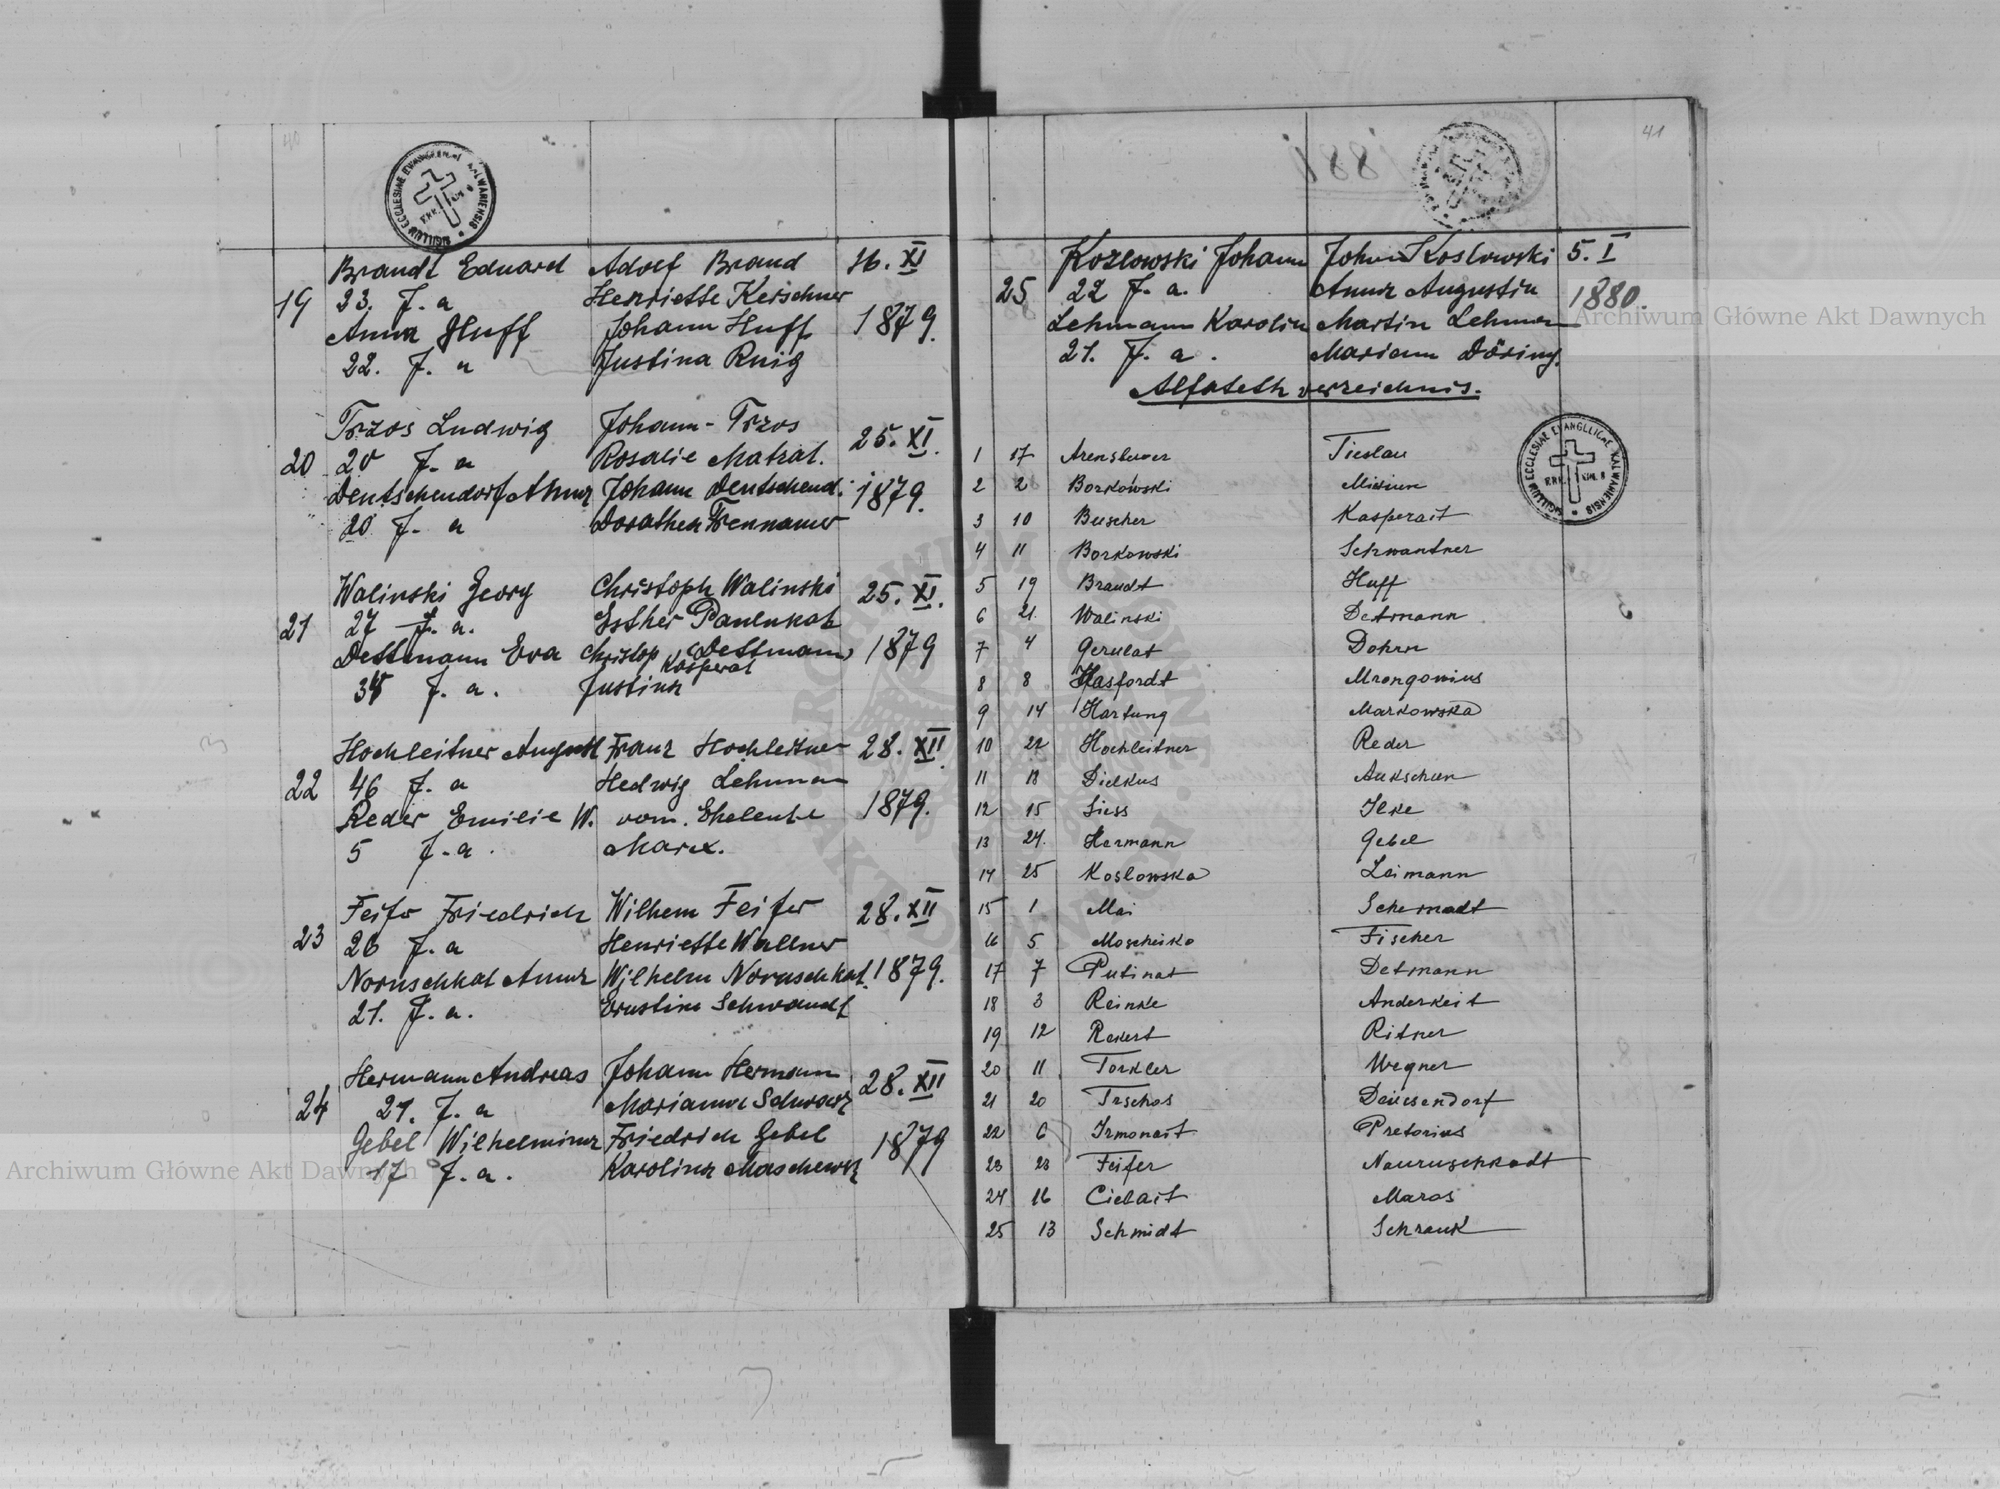 40
SIGILLUM ECCLESIAE EVANGELICAE KALWARIENSIS
19
Brandt Eduard Adolf Brand 16. XI
23. J. a Henriette Kerschner
Anna Huff Johann Huff 1879.
22. J. a Justina Ruig
20
Trzos Ludwig Johann Trzos 25. XI.
20 J. a Rosalie Matzat.
Deutschendorf Anna Johann Deutschend. 1879.
20 J. a Dorathea Trennamer
21
Walinski Georg Christoph Walinski 25. XI.
27 J. a. Esther Paulukat
Dettmann Eva Christop Dettmann 1879
Kasperat
34 J. a. Justina
22
Hochleitner August Franz Hochleitner 28. XII.
46 J. a Hedwig Lehmann
Reder Emilie W. vom. Eheleute 1879.
5 J. a. Marx.
23
Feifer Friedrich Wilhem Feifer 28. XII
26 J. a Henriette Wallner
Noruschkat Anna Wilhelm Noruschkat 1879.
21. J. a. Ernstine Schwandt
24
Hermann Andreas Johann Hermann 28. XII
21. J. a Marianna Schwarz
Gebel Wilhelmina Friedrich Gebel 1879
17 J. a. Karolina Maschewsk
41
1881
25
Kozlowski Johann Johann Koslowski 5. I
22 J. a. Anna Augustin 1880.
Lehmann Karolin Martin Lehman
21. J. a. Mariann Döring.
Alfabeth verzeichnis.
SIGILLUM ECCLESIAE EVANGELICAE KALWARIENSIS
1 17 Arensburer Tieslau
2 2 Borkowski
3 10 Buscher Kasperait
4 11 Borkowski Schwantner
5 19 Brandt Huff
6 21 Walinski Detmann
7 4 Gerulat Dohrn
8 8 Hasfordt Mrongowius
9 14 Hartung Markowska
10 22 Hochleitner Reder
11 18 Dielkus Aukschun
12 15 Siess Ilke
13 24. Hermann Gebel
14 25 Koslowska Leimann
15 1 Mai Schernadt
16 5 Moscheiko Fischer
17 7 Putinat Detmann
18 3 Reinke Anderkeit
19 12 Rekert Ritner
20 11 Torkler Wegner
21 20 Trschos Deuesendorf
22 6 Irmonait Pretorius
23 23 Feifer Nauruschkadt
24 16 Cielait Maros
25 13 Schmidt Schrank
Archiwum Główne Akt Dawnych
Archiwum Główne Akt Dawnych
ARCHIWUM GŁÓWNE AKT DAWNYCH